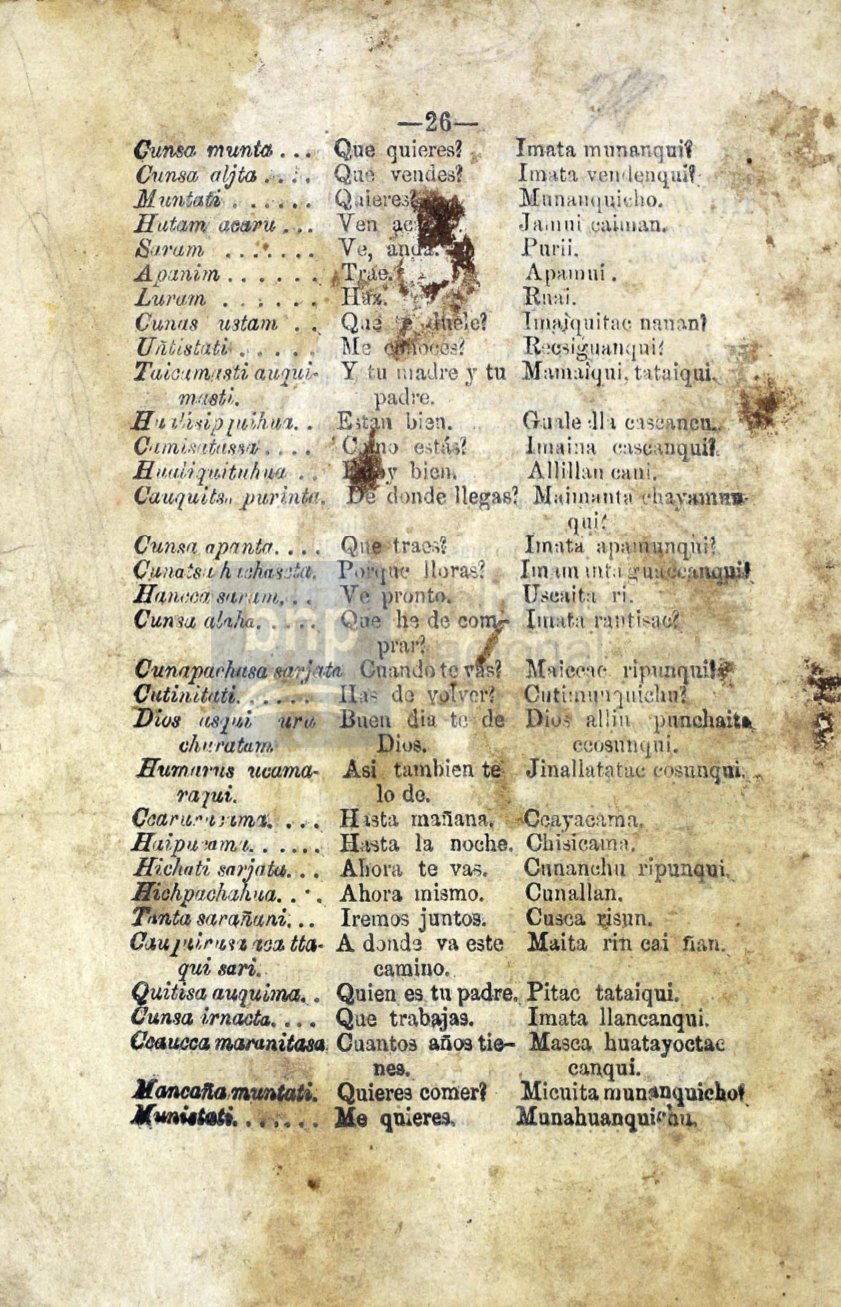 —26—
Cunsa munta... Que quieres? Imata munanqui?
Cunsa aljta.... Que vendes? Imata vendenqui?
Muntati...... Quieres? Munanquicho.
Hutam acaru... Ven Jamui caiman.
Saram ....... Ve, anda. Purii.
Apanim....... Trae. Apamui.
Luram ...... Haz. Ruai.
Cunas ustam .. Que duele? Imaiquitac nanan?
Uñtistati..... Me conoces? Recsiguanqui?
Taicamasti auqui- Y tu madre y tu Mamaiqui, tataiqui.
masti. padre.
Están bien. cascancu.
Camisatassa.... Como estás? Imaina cascanqui?
Hualiquituhua .. Estoy bien. Allillan cani.
Cauquitsa purinta. De donde llegas? Maimanta chayamun-
qui?
Cunsa apanta.... Que traes? Imata apamunqui?
Porque lloras?
Hancca saram... Ve pronto. Uscaita ri.
Cunsa alaha..... Que he de com- Imata rantisac?
prar?
Cunapachasa sarjata Cuando te vas? Maiccac ripunqui?
Cutinitati...... Has de volver? Cutimunquichu?
Dios asqui uru Buen dia te de Dios allin punchaita
churatam Dios. ccosunqui.
Humarus ucama- Asi tambien te Jinallatatac cosunqui.
raqui. lo de.
Hasta mañana. Ccayacama.
Haipucama...... Hasta la noche. Chisicama.
Hichati sarjata... Ahora te vas. Cunanchu ripunqui.
Hichpachahua.... Ahora mismo. Cunallan.
Tanta sarañani... Iremos juntos. Cusca risun.
aca tta- A donde va este Maita rin cai ñan.
qui sari. camino.
Quitisa auquima.. Quien es tu padre. Pitac tataiqui.
Cunsa irnacta.... Que trabajas. Imata llancanqui.
Ccaucca maranitasa Cuantos años tie- Masca huatayoctac
nes. canqui.
Mancaña muntati. Quieres comer? Micuita munanquicho?
Munistati....... Me quieres. Munahuanquichu.